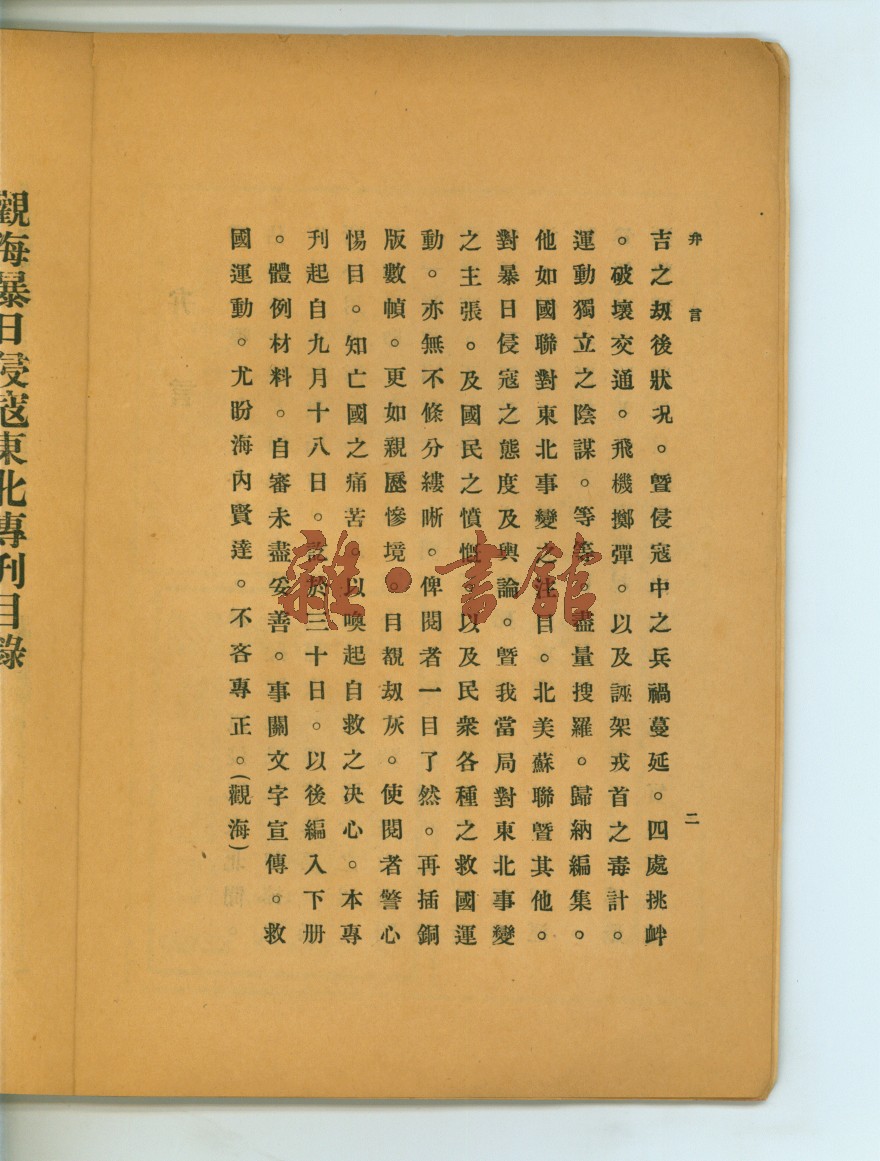 弁言
二
吉之刼後狀况。曁侵寇中之兵禍蔓延。四處挑衅
。破壞交通。飛機擲彈。以及誣架戎首之毒計。
運動獨立之陰謀。等等。盡量搜羅。歸納編集。
他如國聯對東北事變之注目。北美蘇聯曁其他。
對暴日侵寇之態度及輿論。曁我當局對東北事變
之主張。及國民之憤慨。以及民衆各種之救國運
動。亦無不條分縷晰。俾閱者一目了然。再插銅
版數幀。更如親歷慘境。目覩刼灰。使閱者警心
惕目。知亡國之痛苦。以喚起自救之决心。本專
刋起自九月十八日。訖於三十日。以後編入下册
。體例材料。自審未盡妥善。事關文字宣傳。救
國運動。尤盼海內賢達。不客專正。(觀海)
觀海暴日侵寇東北專刋目錄
雜·書館